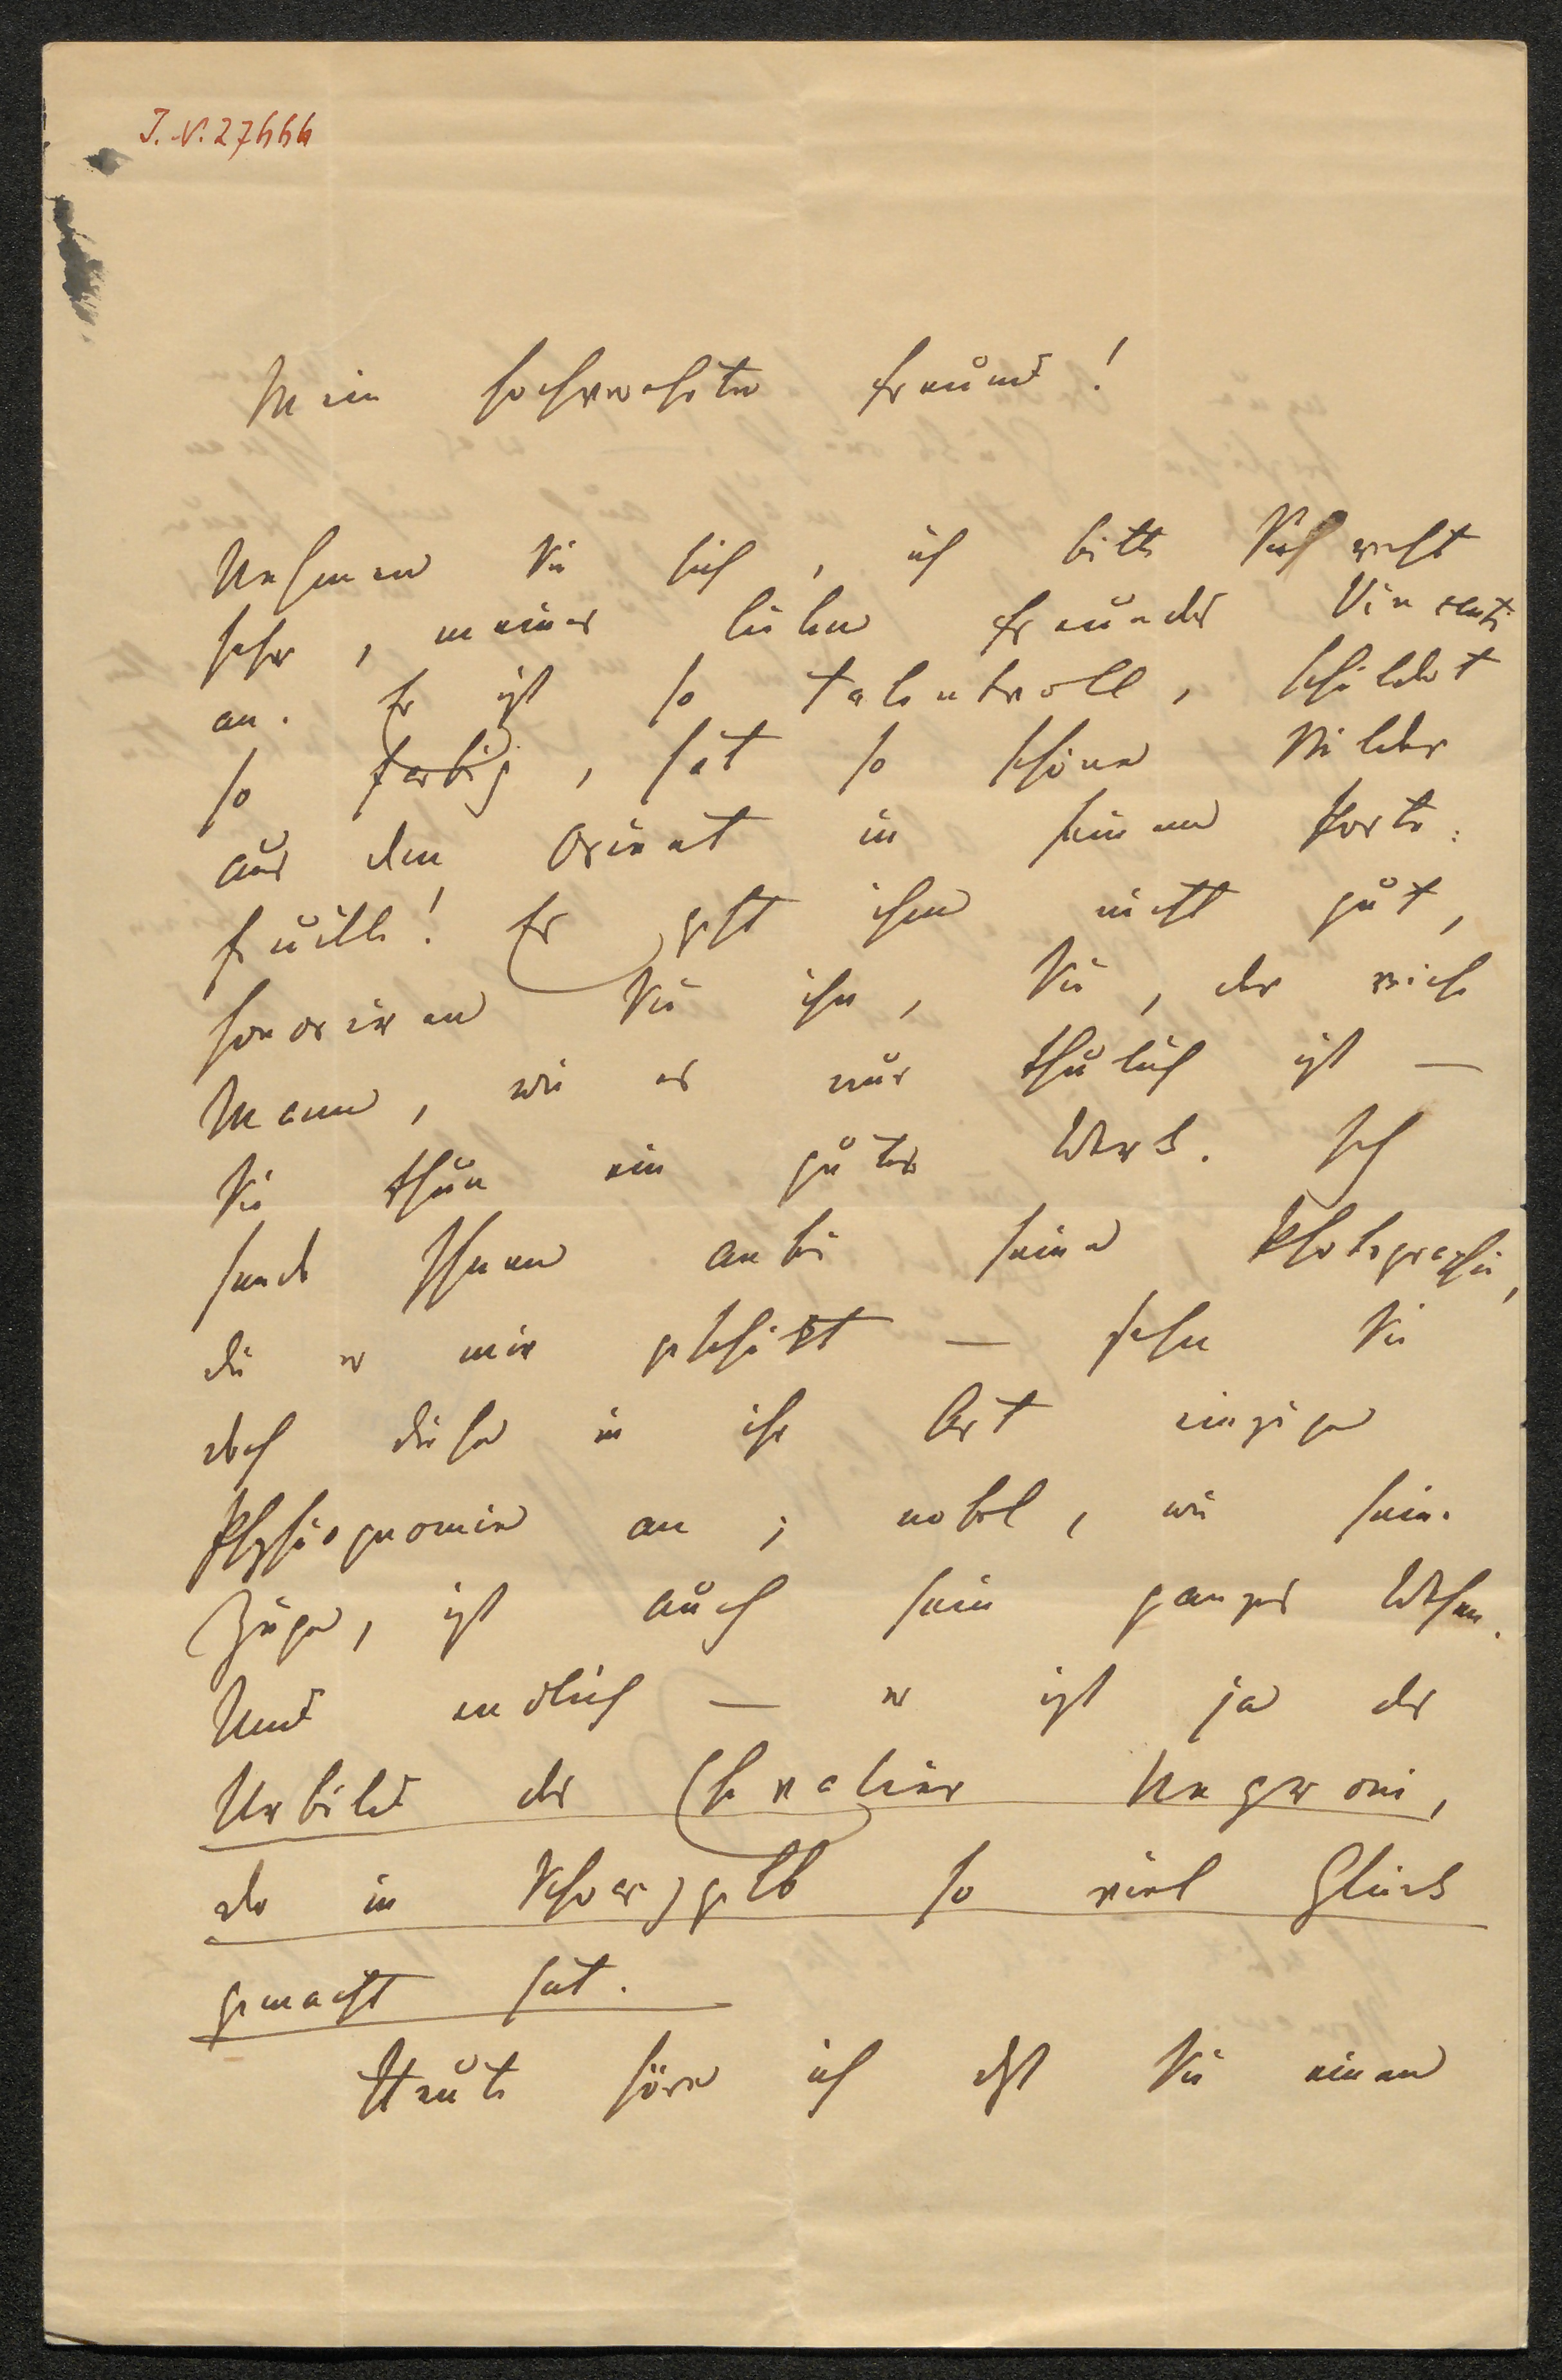 I. N. 27666
Mein hochverehrter Freund!
Nehmen Sie sich, ich bitte Sich recht
sehr, meines lieben Freundes Vincenti
an. Er ist so talentvoll, schildert
so farbig, hat so schöne Bilder
aus dem Orient in seinem Porte-
feuille! Er geht ihm nicht gut,
honoriren Sie ihn, Sie, der reiche
Mann, wie es nur thulich ist —
Sie thun ein gutes Werk. Ich
sende Ihnen anbei seine Photographie,
die er mir geschikt — sehn Sie
doch diese in ihr Art einzige
Physiognomie an; nobel, wie seine
Züge, ist auch sein ganzes Wesen.
Und endlich — er ist ja das
Urbild des Chevalier Negroni,
der in Schwarzgelb so viel Glück
gemacht hat.
Heute höre ich dßt Sie einen